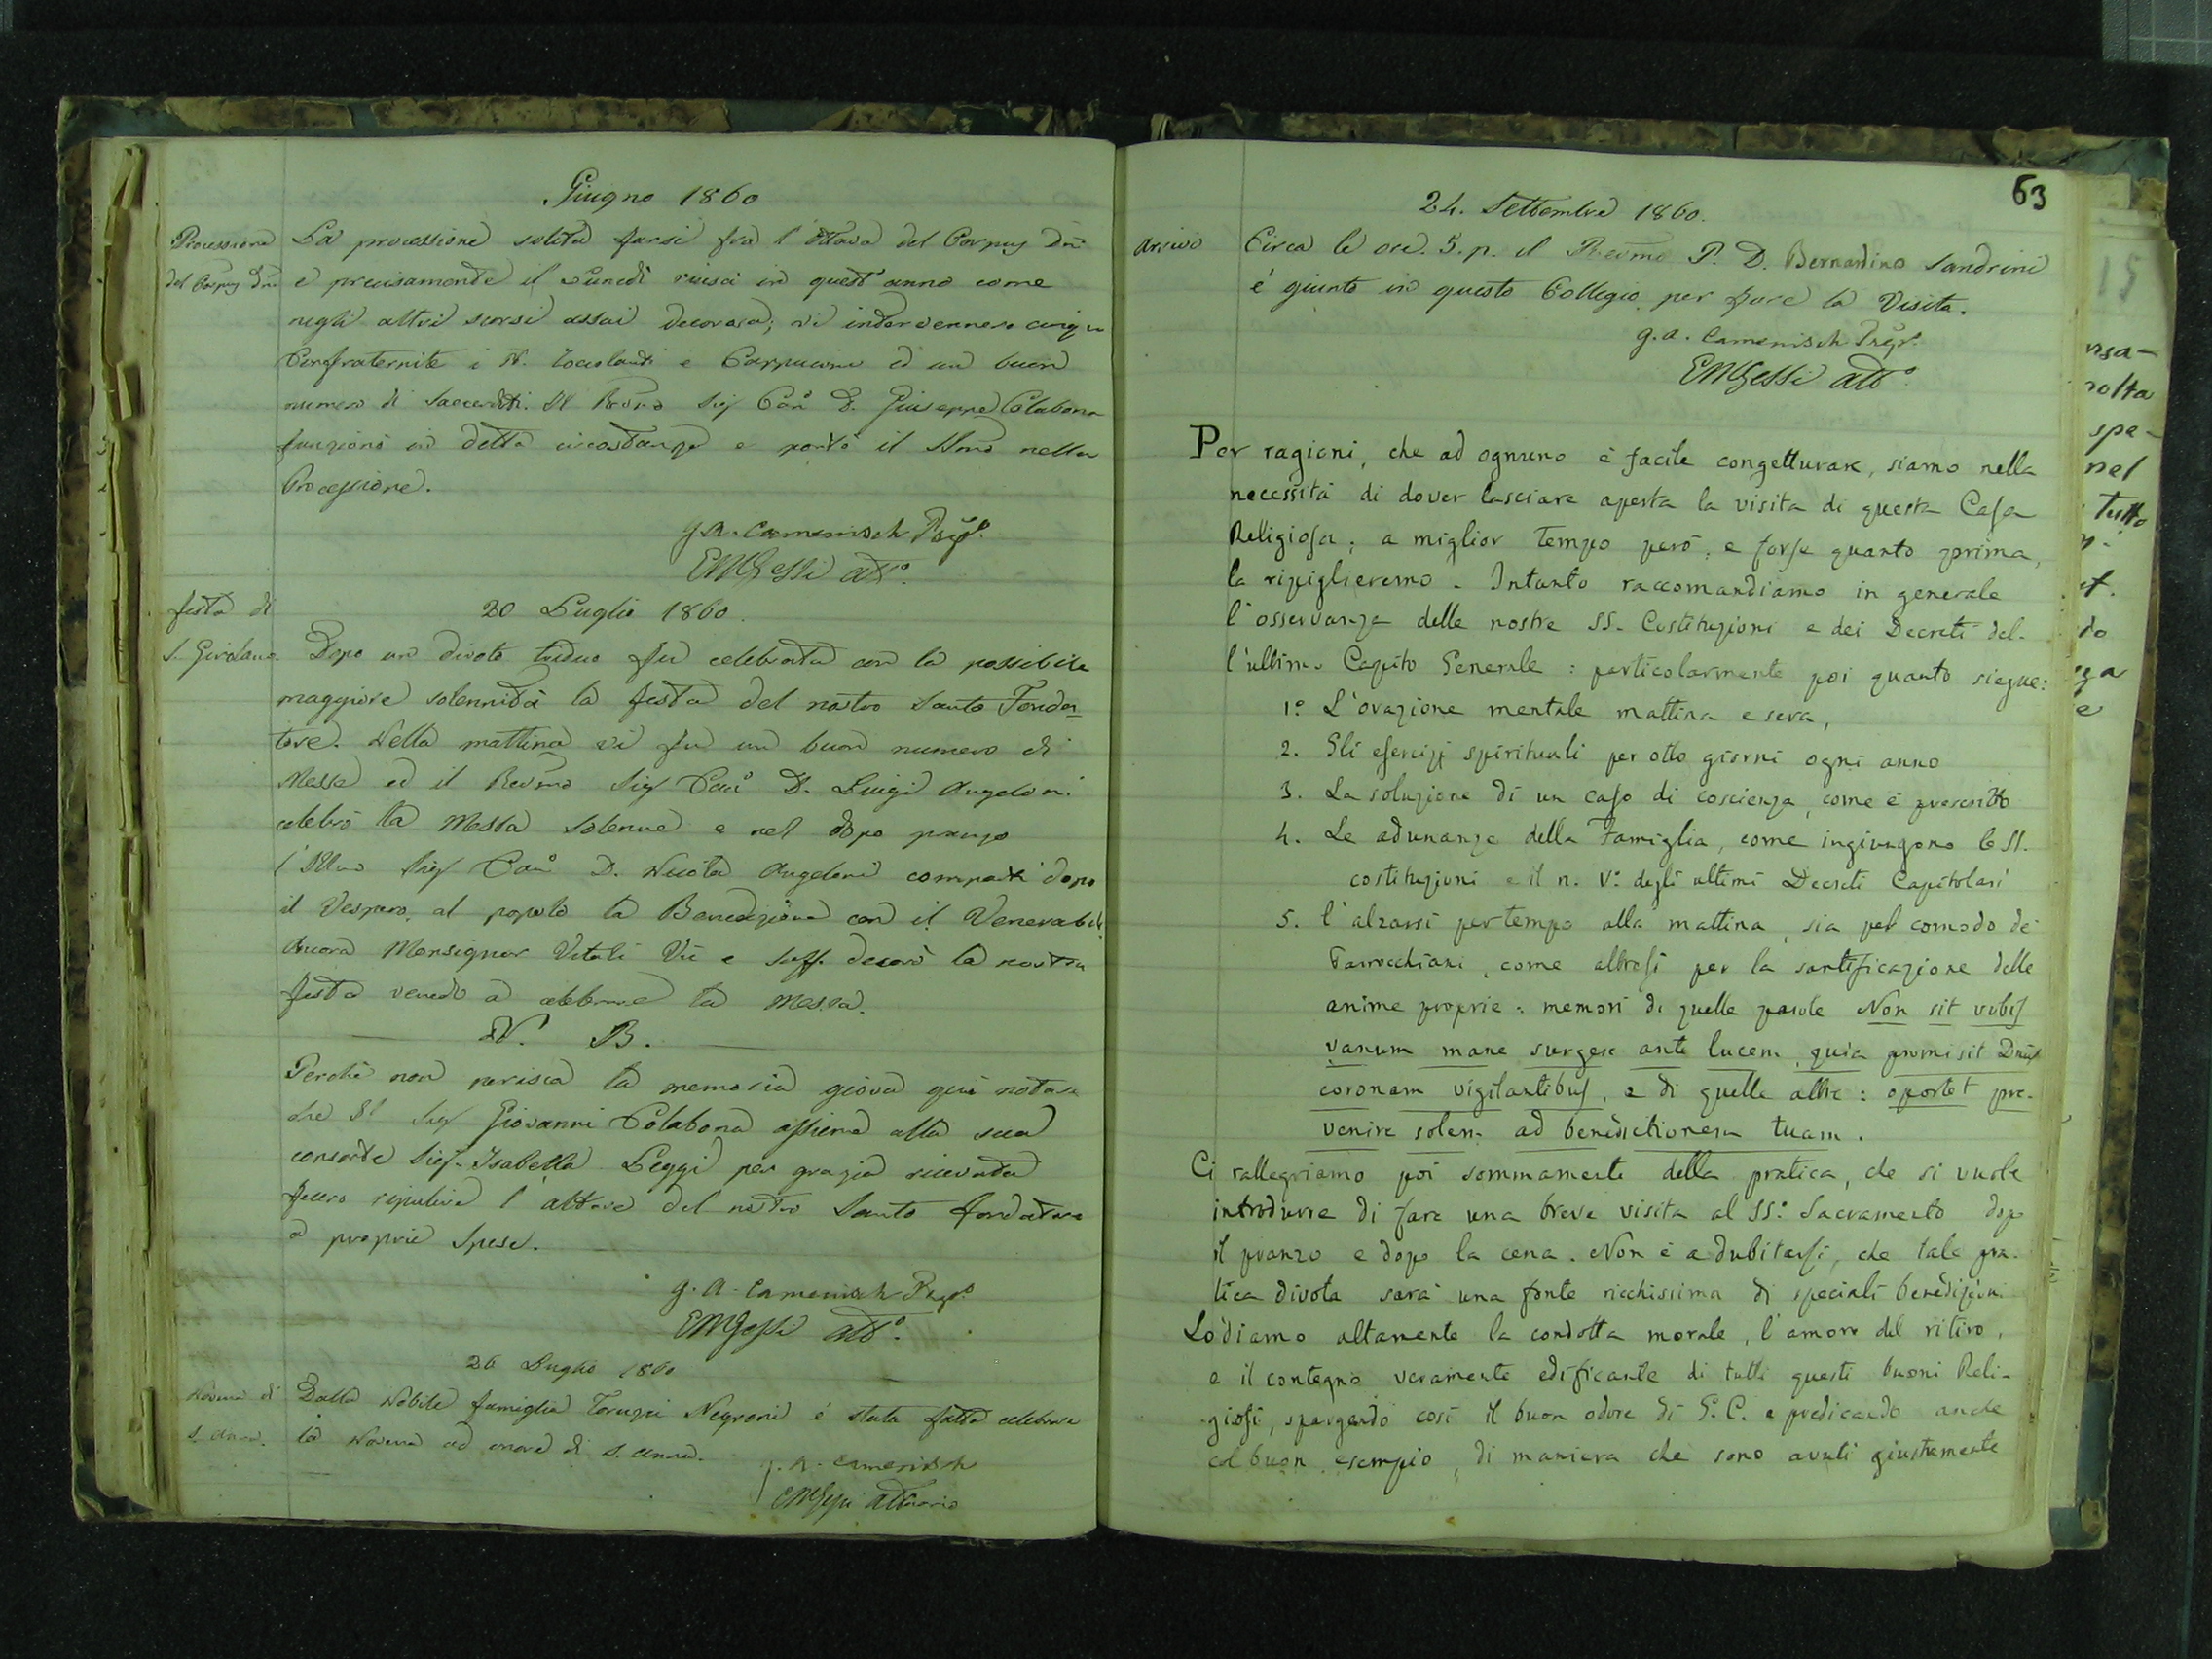 Giugno 1860
Processione
del Corpus Dni
La processione solita farsi fra l'ottava del Corpus Dni
e precisamente il Lunedì riuscì in quest'anno come
negli altri scorsi assai decorosa; vi intervennero cinque
Confraternite i e Cappuccini ed un buon
numero di Sacerdoti. Il Revmo Sig Can D. Giuseppe Colabona
funzionò in detta circostanza e portò il nella
Processione.
G. A. Camenisch Prep.
EMGessi att.º
festa di
S. Girolamo
20 Luglio 1860.
Dopo un divoto triduo fu celebrata con la possibile
maggiore solennità la festa del nostro Santo Fonda-
tore. Nella mattina vi fu un buon numero di
Messe ed il Revmo Sig Can D. Luigi Angeloni
celebrò la Messa solenne e nel dopo pranzo
l'Illmo Sig Can D. Nicola Angeloni compartì dopo
il Vespero, al popolo la Benedizione con il Venerabile
Ancora Monsignor Vitali Vic e Suff. decorò la nostra
festa venendo a celebrare la Messa.
N. B.
Perchè non perisca la memoria giova qui notare
che il Sig Giovanni Colabona assieme alla sua
consorte Sig. Isabella Leggi per grazia ricevuta
fecero ripulire l'altare del nostro Santo fondatore
a proprie spese.
G. A. Camenisch Prep.
EMGessi att.º
26 Luglio 1860
Novena di
S. Anna.
Dalla Nobile famiglia Toruzzi Negroni è stata fatta celebrare
la Novena ad onore di S. Anna.
G. A. Camenisch
EMGessi Attuario
63
24. Settembre 1860.
Arrivo
Circa le ore 5. p. il Revmo P. D. Bernardino Sandrini
é giunto in questo Collegio per fare la Visita.
G. A. Camenisch Prep.
EMGessi att.º
Per ragioni, che ad ognuno è facile congetturare, siamo nella
necessità di dover lasciare aperta la visita di questa Casa
Religiosa; a miglior tempo però, e forse quanto prima,
la ripiglieremo. Intanto raccomandiamo in generale
l'osservanza delle nostre SS. Costituzioni e dei Decreti del-
l'ultimo Capito Generale: particolarmente poi quanto siegue:
1º L'orazione mentale mattina e sera,
2. Gli esercizj spirituali per otto giorni ogni anno
3. La soluzione di un caso di coscienza, come è prescritto
4. Le adunanze della Famiglia, come ingiungono le SS.
costituzioni e il n. V.º degli ultimi Decreti Capitolari
5. l'alzarsi per tempo alla mattina, sia pel comodo de'
Parrocchiani, come altresì per la santificazione delle
anime proprie: memori di quelle parole Non sit vobis
vanum mane surgere ante lucem, quia promisit Dnus
coronam vigilantibus, e di quelle altre: oportet pre-
venire solem ad benedictionem tuam.
Ci rallegriamo poi sommamente della pratica, che si vuole
introdurre di fare una breve visita al SS.º Sacramento dopo
il pranzo e dopo la cena. Non è a dubitarsi, che tale pra-
tica divota sarà una fonte ricchissima di speciali benedizioni.
Lodiamo altamente la condotta morale, l'amore del ritiro,
e il contegno veramente edificante di tutti questi buoni Reli-
giosi, spargendo così il buon odore di G. C. e predicando anche
col buon esempio, di maniera che sono avuti giustamente